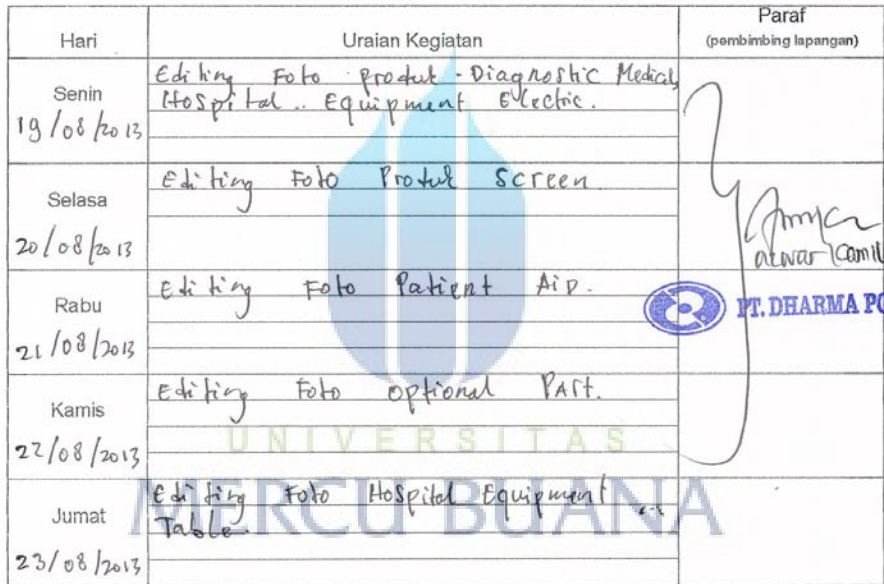 Hari Uraian Kegiatan Paraf
(pembimbing lapangan)
Senin
19/08/2013
Editing Foto Produk - Diagnostic Medical
Hospital .. Equipment Electric.
Selasa
20/08/2013
Editing Foto Produk Screen
Rabu
21/08/2013
Editing Foto Patient Aid.
Kamis
22/08/2013
Editing Foto Optional Part.
Jumat
23/08/2013
Editing Foto Hospital Equipment
Table.
PT. DHARMA PO
UNIVERSITAS
MERCU BUANA